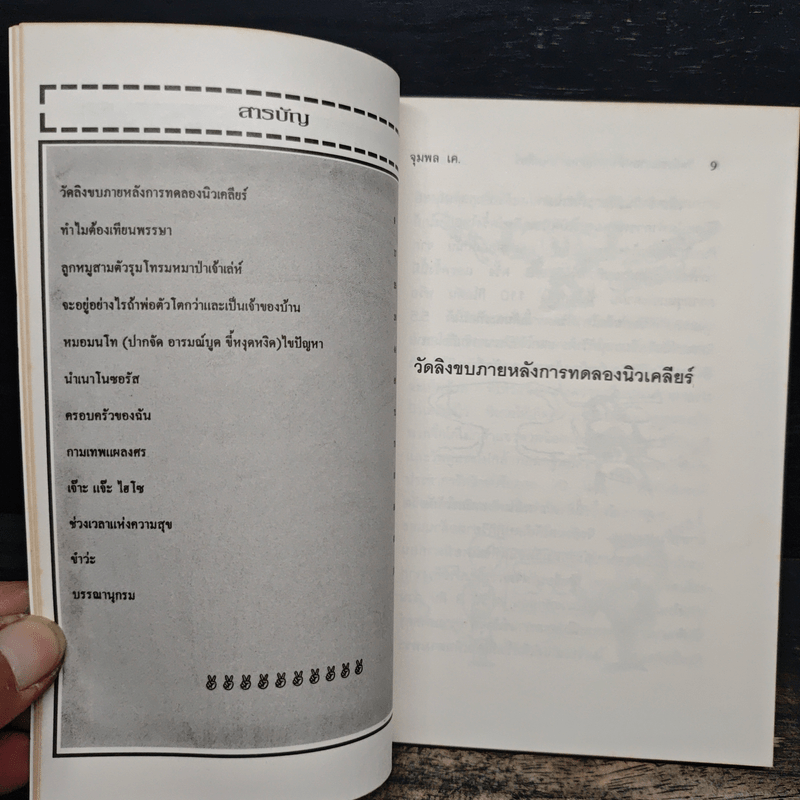 สารบัญ
วัดลิงขบภายหลังการทดลองนิวเคลียร์
ทำไมต้องเทียนพรรษา
ลูกหมูสามตัวรุมโทรมหมาป่าเจ้าเล่ห์
จะอยู่อย่างไรถ้าพ่อตัวโตกว่าและเป็นเจ้าของบ้าน
หมอมนโท (ปากจัด อารมณ์บูด ขี้หงุดหงิด)ไขปัญหา
นำเนาโนซอรัส
ครอบครัวของฉัน
กามเทพแผลงศร
เจ๊าะ แจ๊ะ ไฮโซ
ช่วงเวลาแห่งความสุข
ขำว่ะ
บรรณานุกรม
จุมพล เค.
9
วัดลิงขบภายหลังการทดลองนิวเคลียร์